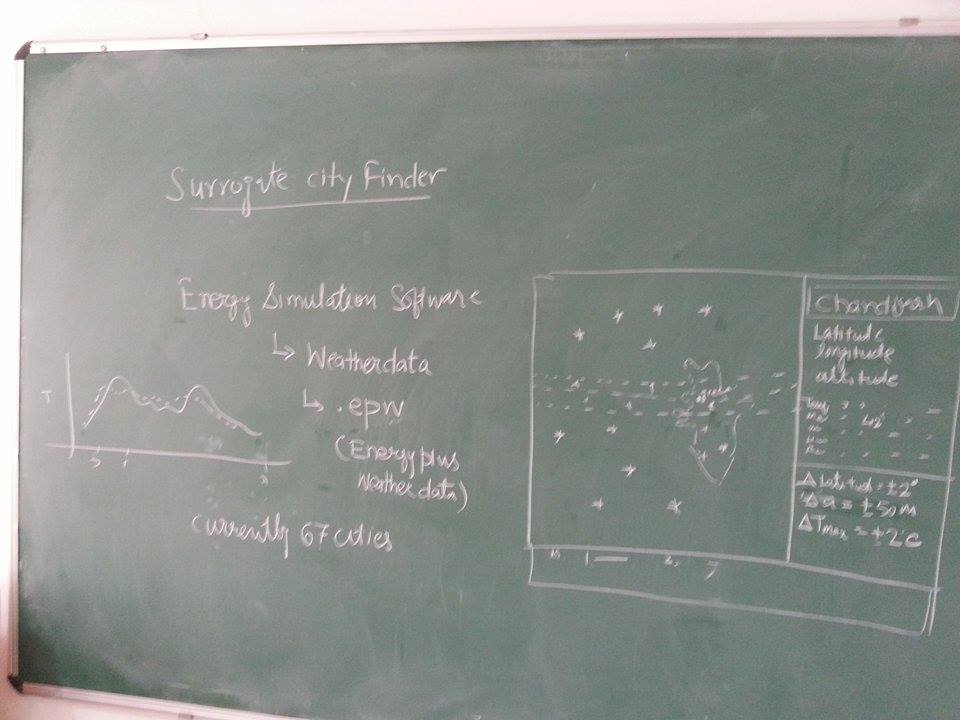 Surrogate city Finder
Energy Simulation Software
↳ Weatherdata
↳ .epw
(Energyplus
Weatherdata)
Currently 67 cities
T
Chandigarh
Latitude
longitude
altitude
42°
Δ Latitud = ±2°
Δa = ±50m
ΔTmax = ±2°c
1.
2.